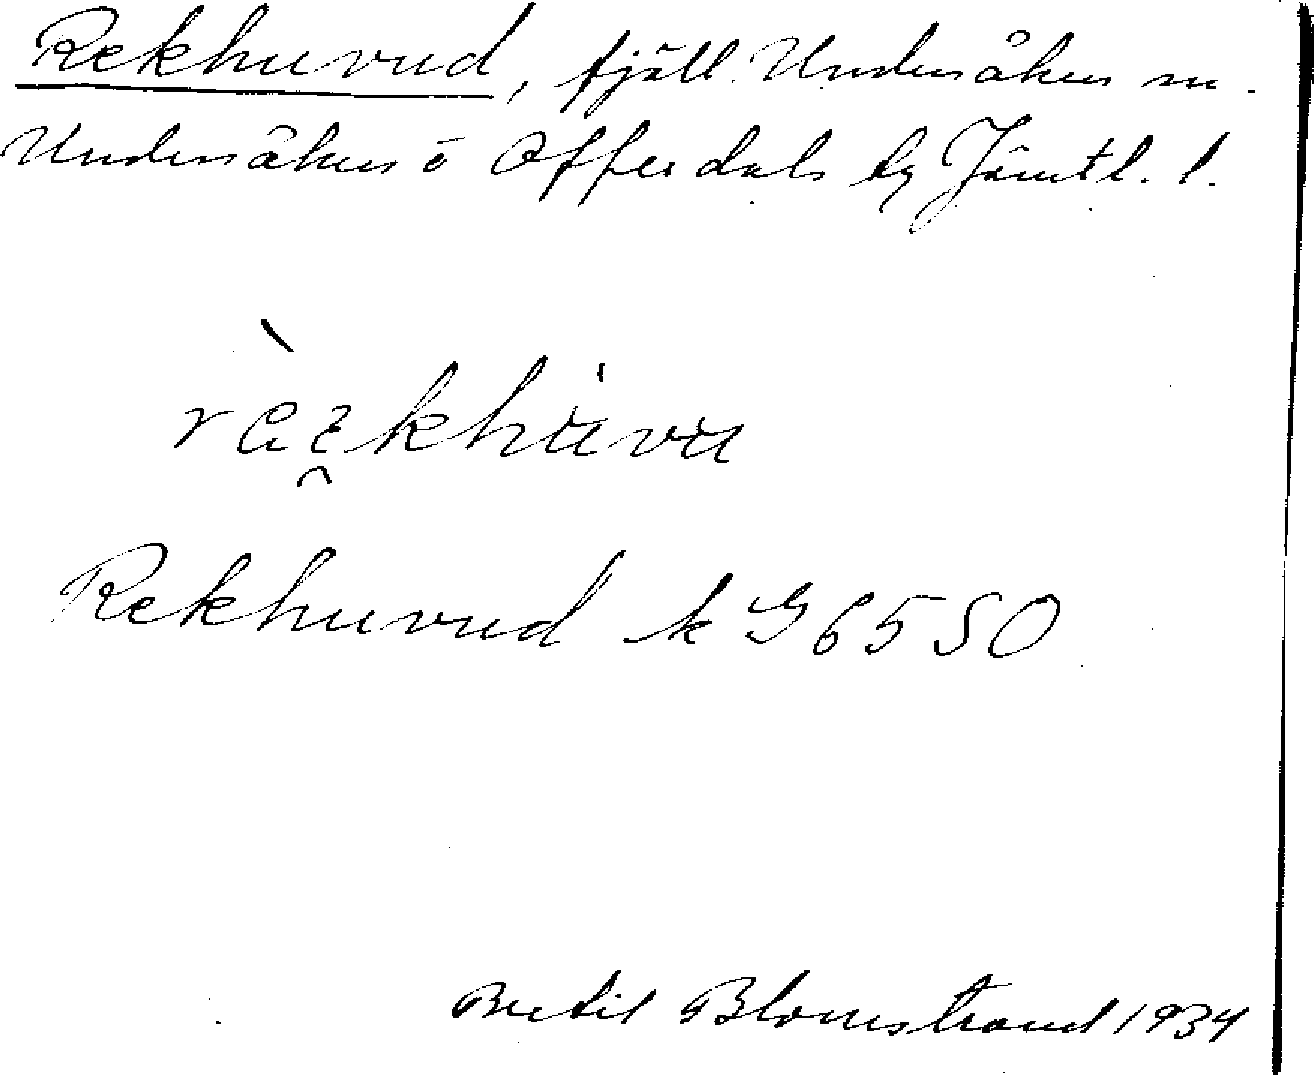 Rekhuvud, fjäll. Undersåkers sn.
Undersåkers o Offerdals tg Jämtl. l.
Rekhuvud k G 6550
Bertil Blomstrand 1934